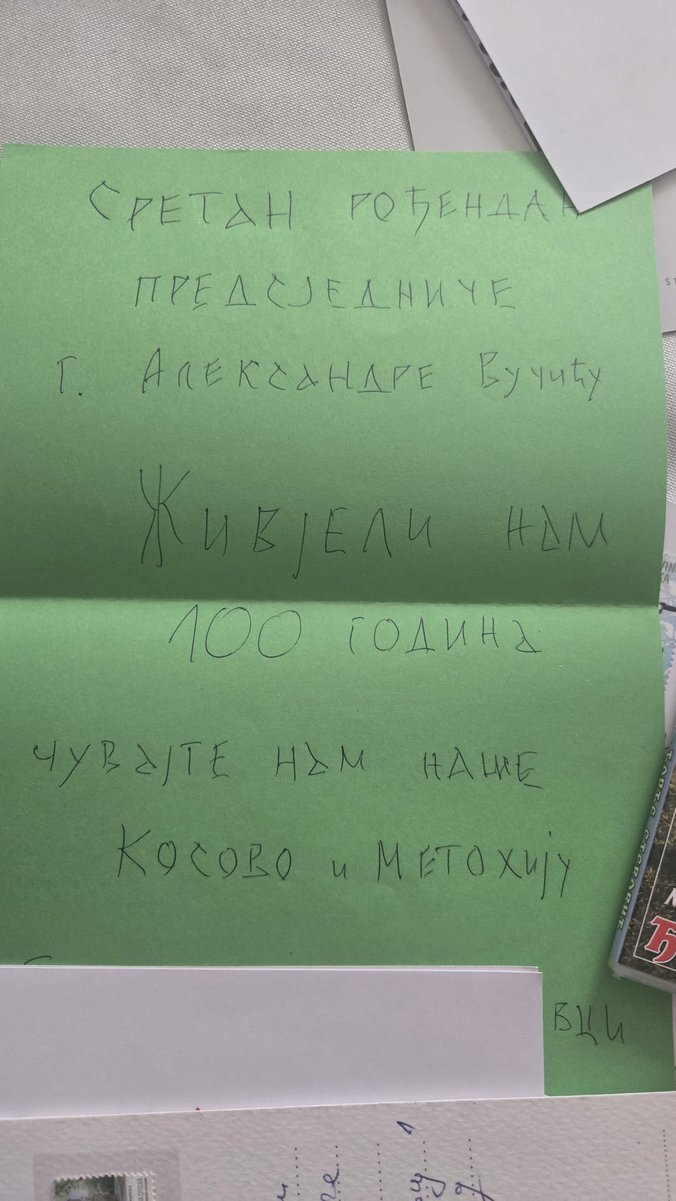 СРЕТАН РОЂЕНДАН
ПРЕДСЈЕДНИЧЕ
Г. АЛЕКСАНДРЕ ВУЧИЋУ
ЖИВЈЕЛИ НАМ
100 ГОДИНА
ЧУВАЈТЕ НАМ НАШЕ
КОСОВО И МЕТОХИЈУ
ВЦИ